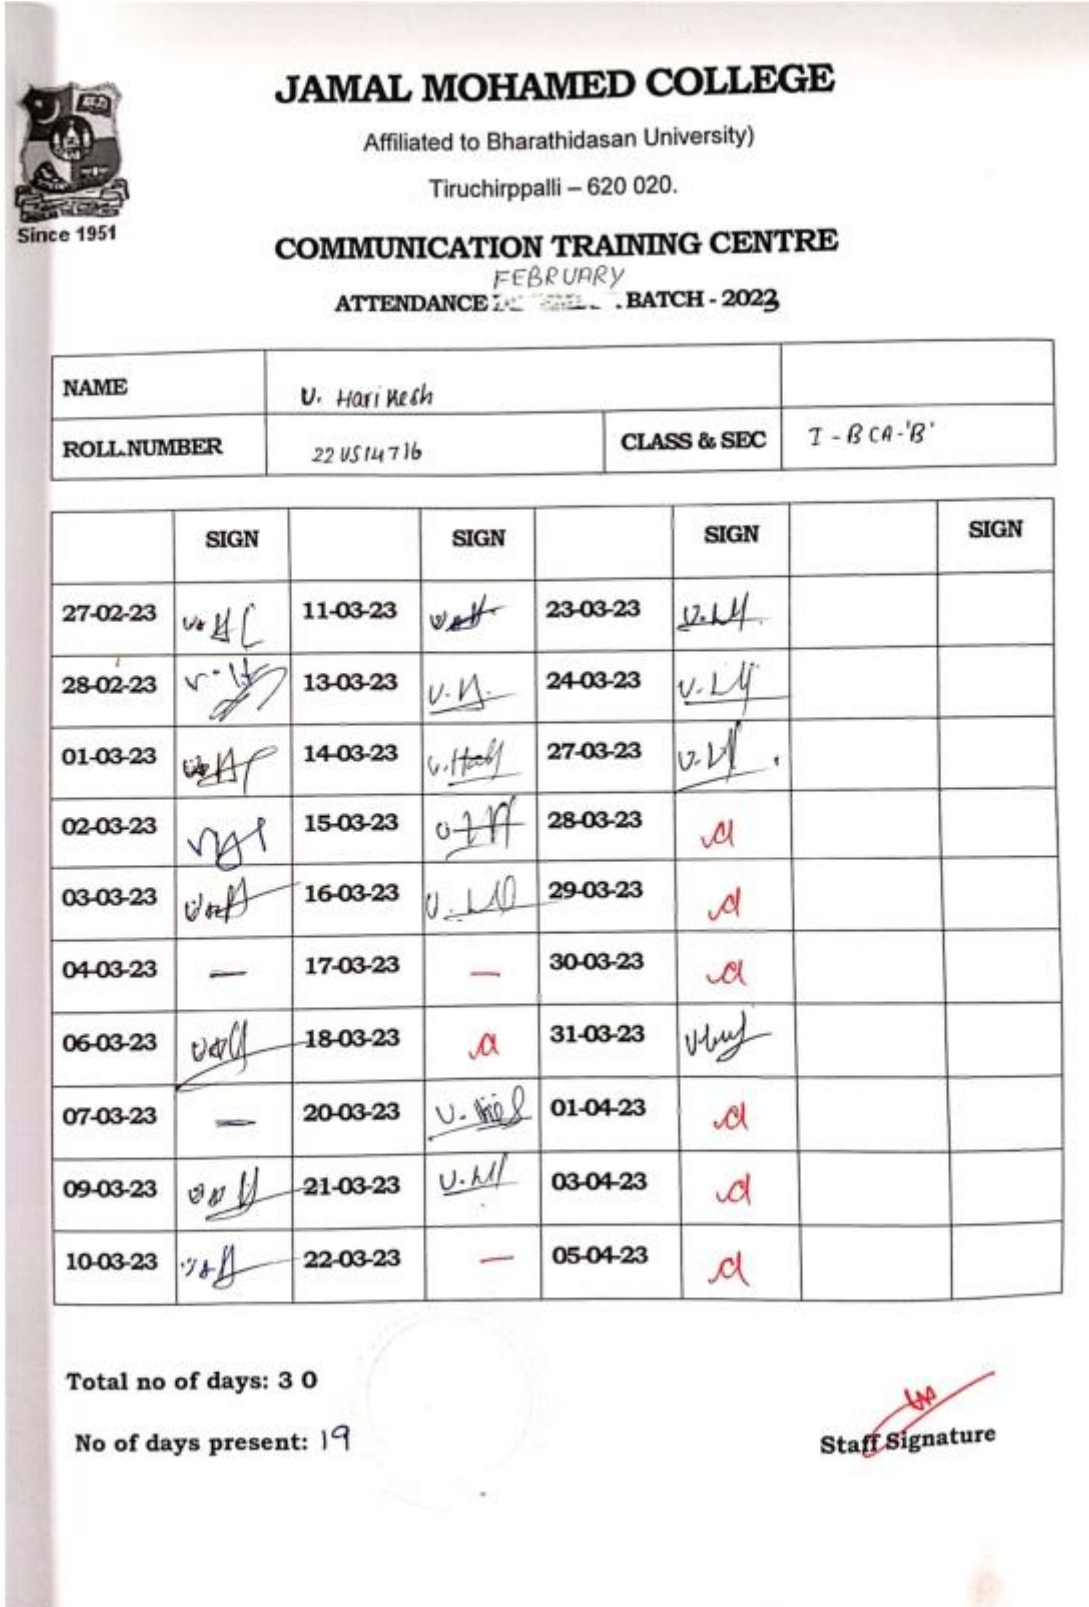 JAMAL MOHAMED COLLEGE
Affiliated to Bharathidasan University)
Tiruchirppalli – 620 020.
Since 1951
COMMUNICATION TRAINING CENTRE
FEBRUARY
ATTENDANCE BATCH - 2023
NAME U. Harikesh
ROLL.NUMBER 22US14716 CLASS & SEC I - BCA-'B'
SIGN SIGN SIGN SIGN
27-02-23 11-03-23 23-03-23
28-02-23 13-03-23 24-03-23
01-03-23 14-03-23 27-03-23
02-03-23 15-03-23 28-03-23 a
03-03-23 16-03-23 29-03-23 a
04-03-23 — 17-03-23 — 30-03-23 a
06-03-23 18-03-23 a 31-03-23
07-03-23 — 20-03-23 01-04-23 a
09-03-23 21-03-23 03-04-23 a
10-03-23 22-03-23 — 05-04-23 a
Total no of days: 3 0
No of days present: 19
Staff Signature